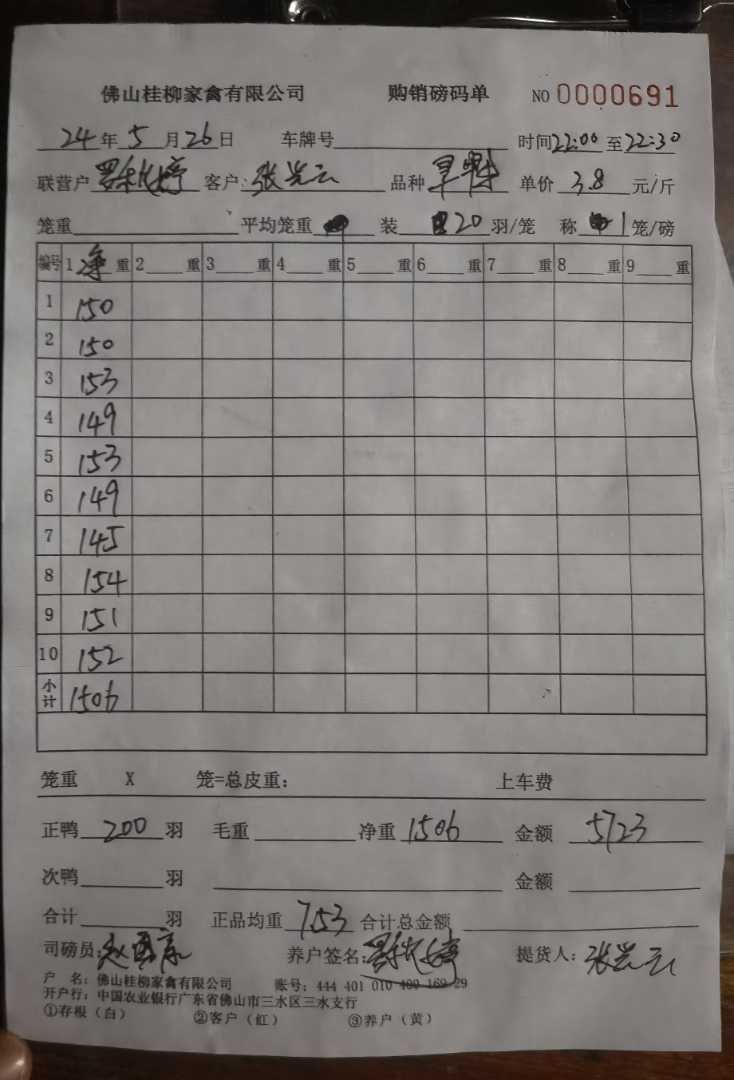 佛山桂柳家禽有限公司 购销磅码单 NO 0000691
24年5月26日 车牌号 时间22:00至22:30
联营户 客户:张 云 品种 单价 3.8 元/斤
笼重 平均笼重 装 20 羽/笼 称 1 笼/磅
编号 1 净 重 2 重 3 重 4 重 5 重 6 重 7 重 8 重 9 重
1 150
2 150
3 153
4 149
5 153
6 149
7 145
8 154
9 151
10 152
小计 1506
笼重 X 笼=总皮重: 上车费
正鸭 200 羽 毛重 净重 1506 金额 5723
次鸭 羽 金额
合计 羽 正品均重 7.53 合计总金额
司磅员: 养户签名: 提货人:张 云
户 名: 佛山桂柳家禽有限公司 账号: 444 401 010 400 169 29
开户行: 中国农业银行广东省佛山市三水区三水支行
①存根(白) ②客户(红) ③养户(黄)